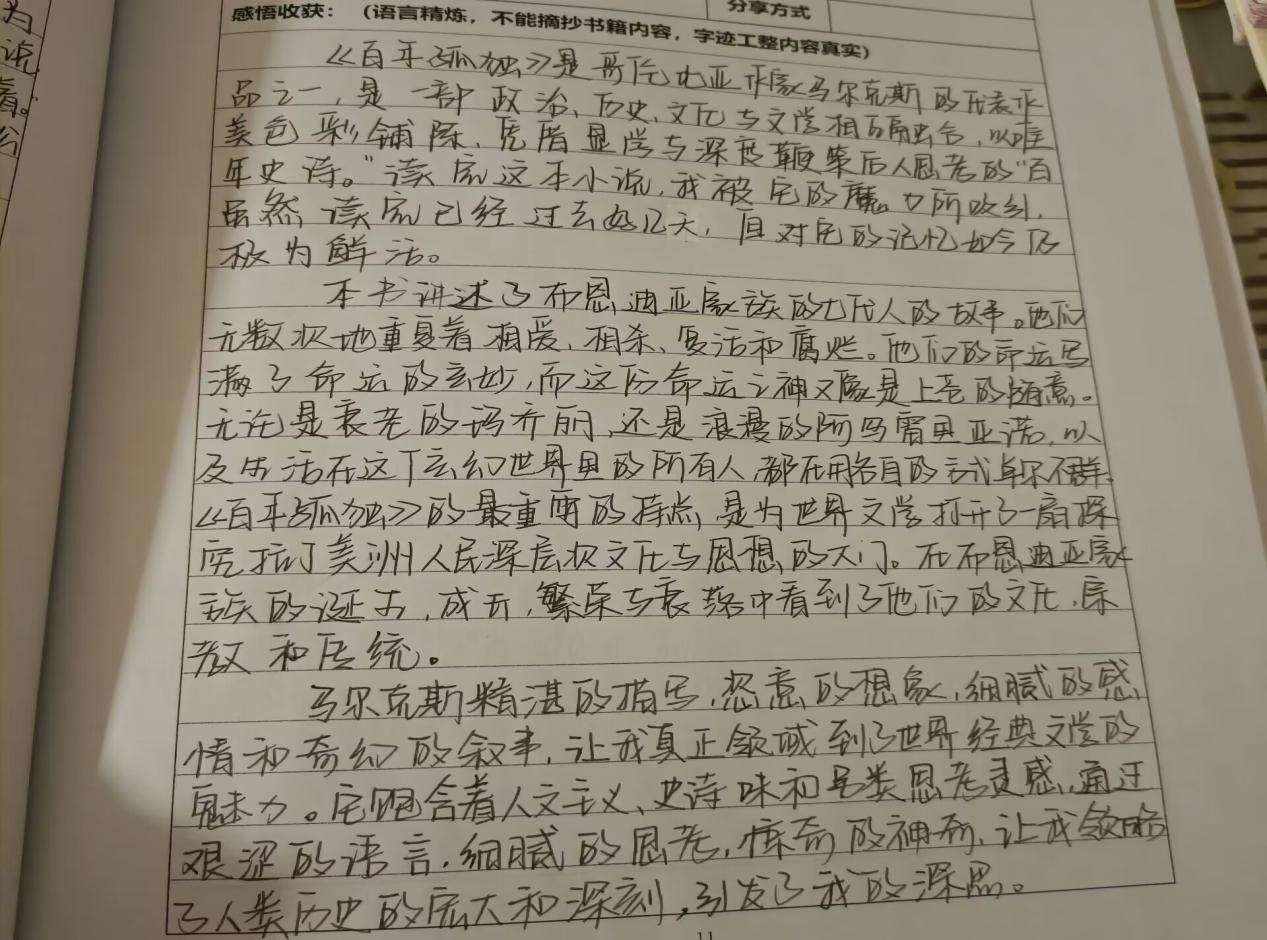 为
说
着。
公
分享方式
感悟收获：（语言精炼，不能摘抄书籍内容，字迹工整内容真实）
《百年孤独》是哥伦比亚作家马尔克斯的代表作
品之一，是一部政治、历史、文化与文学相互融合，以唯
美色彩铺陈、凭借显学与深度鞭策后人思考的“百
年史诗。”读完这本小说，我被它的魔力所吸引，
虽然读完已经过去好几天，但对它的记忆如今仍
极为鲜活。
本书讲述了布恩迪亚家族的七代人的故事。他们
无数次地重复着相爱、相杀、复活和腐烂。他们的命运写
满了命运的玄妙，而这历命运之神又像是上苍的随意。
无论是衰老的玛乔丽，还是浪漫的阿玛雷贝亚诺，以
及生活在这个玄幻世界里的所有人，都在用各自的方式卓尔不群。
《百年孤独》的最重要的特点，是为世界文学打开了一扇探
究拉丁美洲人民深层次文化与思想的大门。在布恩迪亚家
族的诞生，成长，繁荣与衰落中看到了他们的文化，宗
教和传统。
马尔克斯精湛的描写，恣意的想象，细腻的感
情和奇幻的叙事，让我真正领域到了世界经典文学的
魅力。它饱含着人文主义、史诗味和另类思考灵感，通过
艰涩的语言，细腻的思考，惊奇的神奇，让我领略
了人类历史的宏大和深刻，引发了我的深思。
11